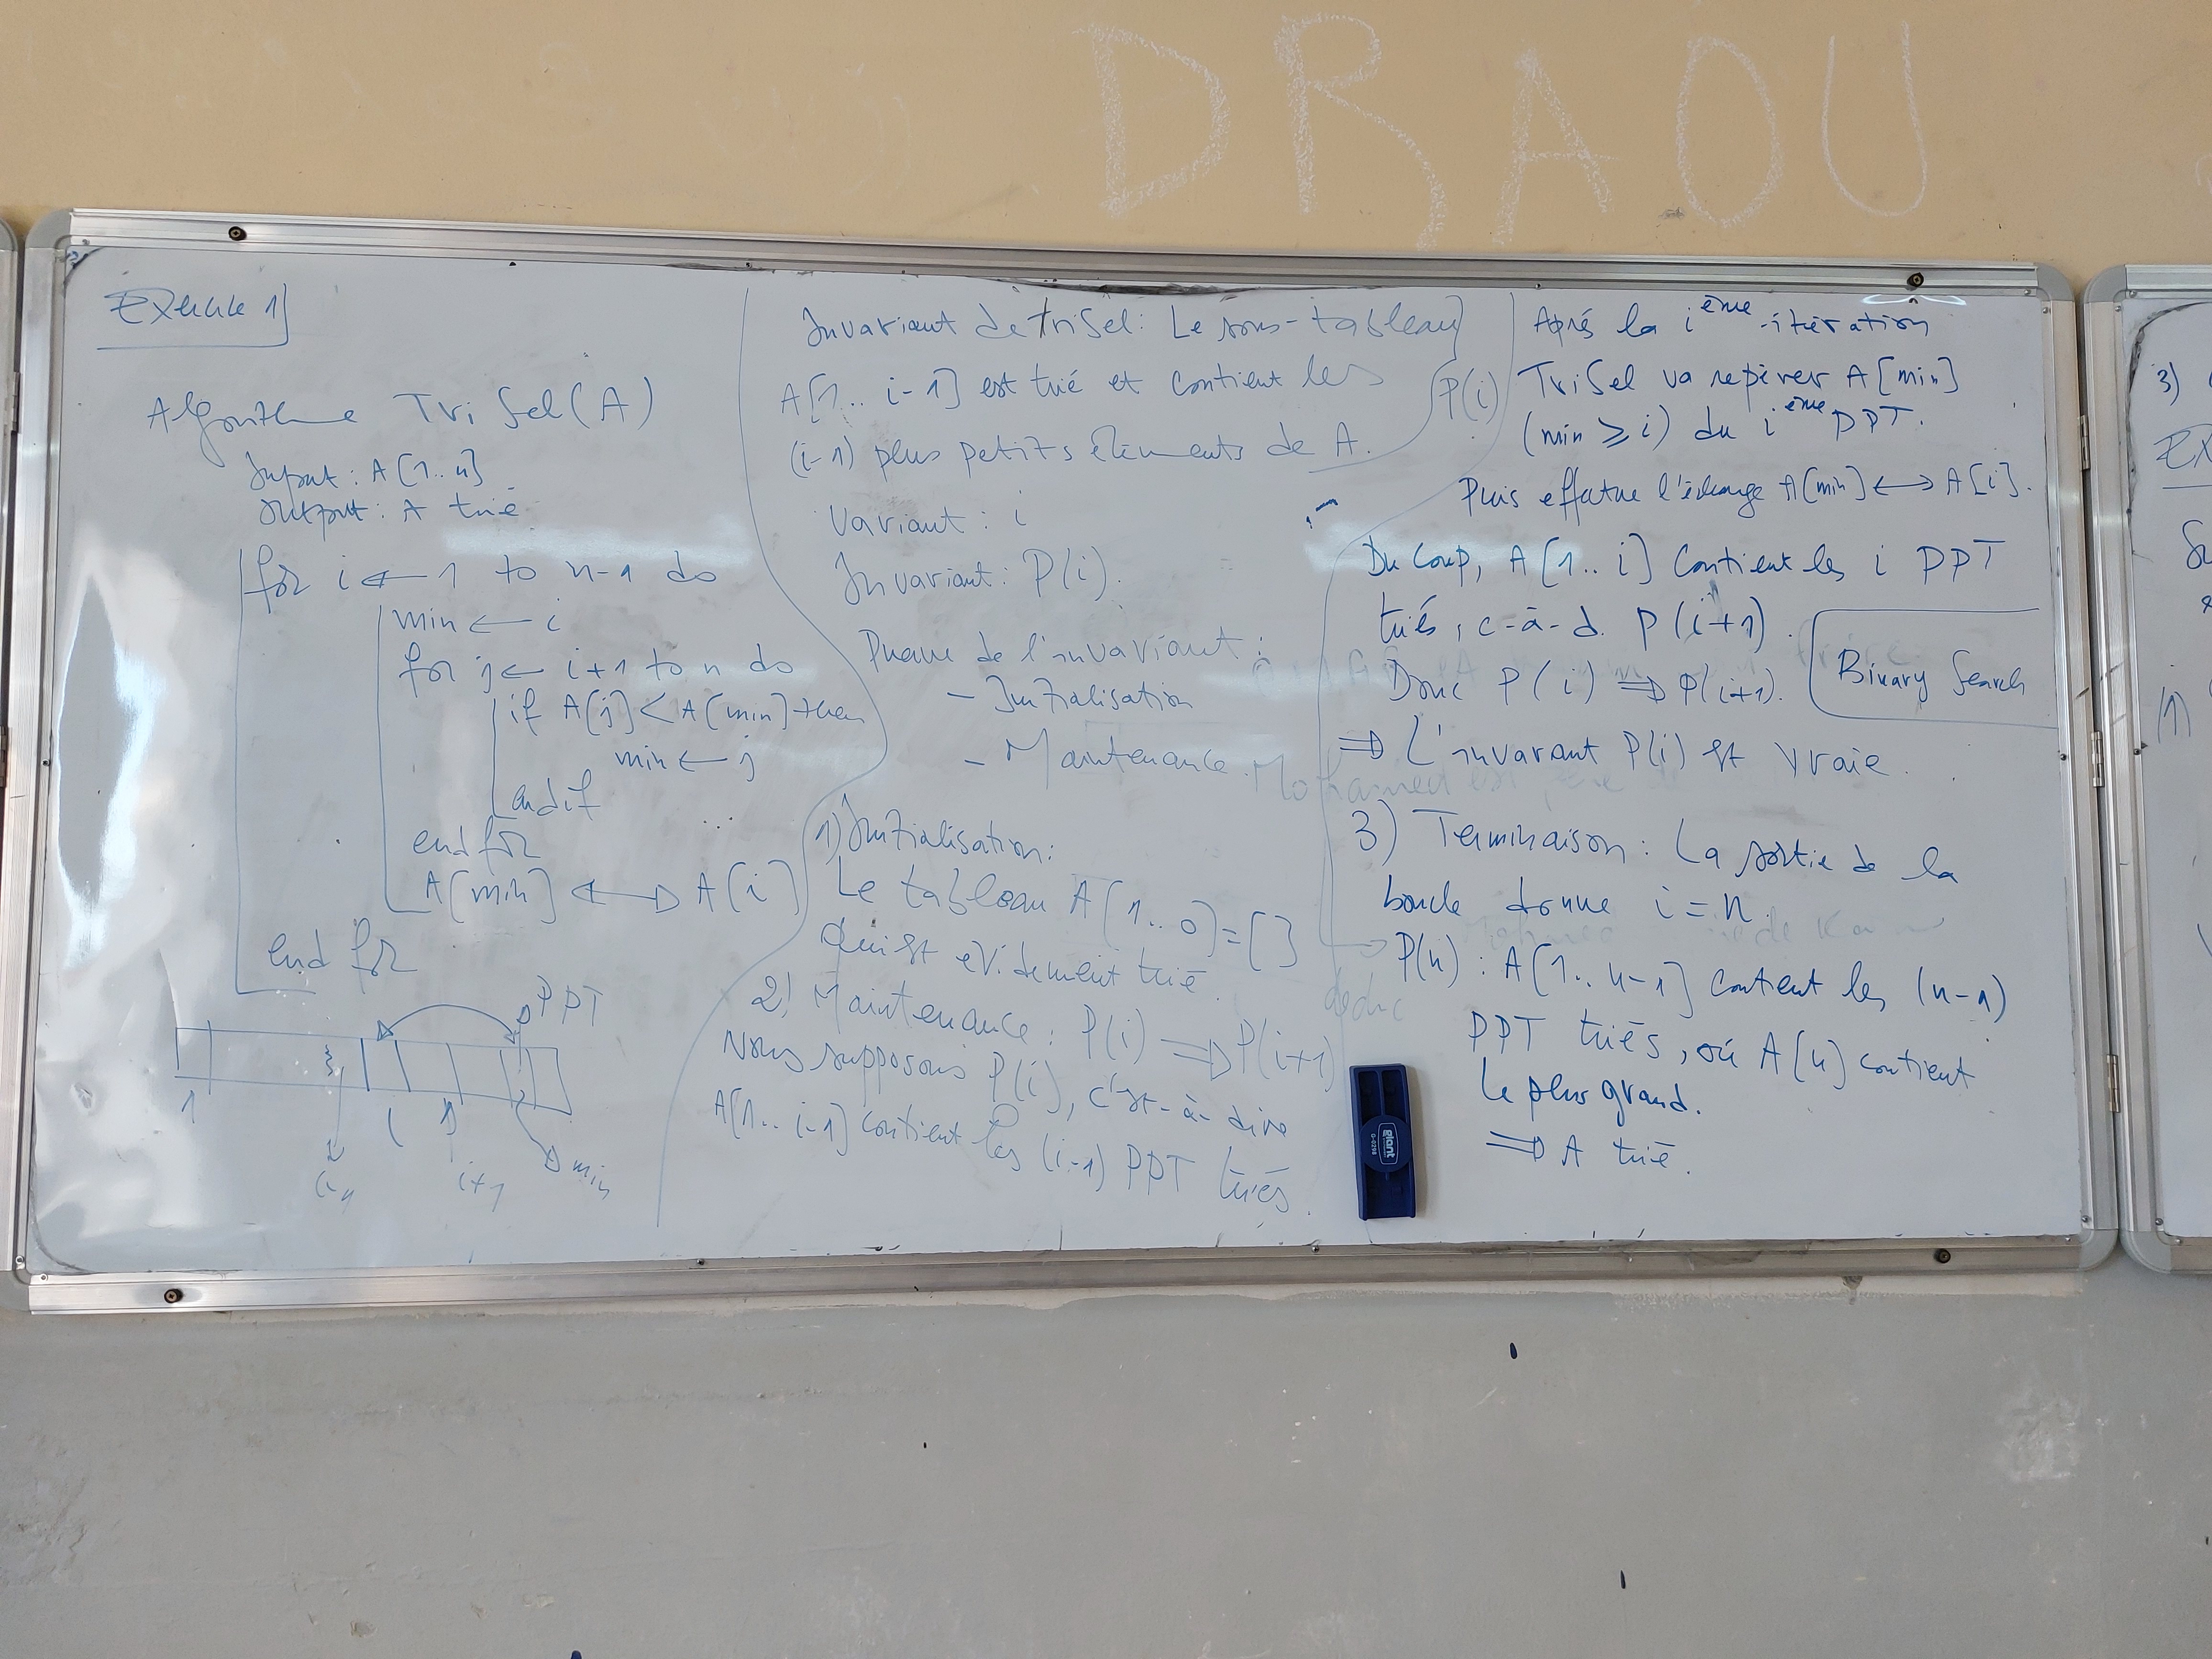 DRAOU
Exercice 1)
Algorithme TriSel(A)
Input : A[1..n]
Output : A trié
for i ← 1 to n-1 do
min ← i
for j ← i+1 to n do
if A[j] < A[min] then
min ← j
endif
end for
A[min] ↔ A[i]
end for
PPT
1
i
j
min
i-1
i+1
Invariant de TriSel : Le sous-tableau
A[1..i-1] est trié et contient les
(i-1) plus petits éléments de A.
P(i)
Variant : i
Invariant : P(i).
Preuve de l'invariant :
- Initialisation
- Maintenance.
1) Initialisation :
Le tableau A[1..0] = []
qui est évidement trié.
2) Maintenance : P(i) ⇒ P(i+1)
Nous supposons P(i), c'est-à-dire
A[1..i-1] contient les (i-1) PPT triés.
Aprés la ième itération
TriSel va repérer A[min]
(min ≥ i) du ième PPT.
Puis effectue l'échange A[min] ↔ A[i].
Du coup, A[1..i] contient les i PPT
triés, c-à-d. P(i+1).
Donc P(i) ⇒ P(i+1).
Binary Search
⇒ L'invariant P(i) est vraie.
3) Terminaison : La sortie de la
boucle donne i = n.
P(n) : A[1..n-1] contient les (n-1)
PPT triés, où A[n] contient
le plus grand.
⇒ A trié.
Plant
3)
Ex
1)